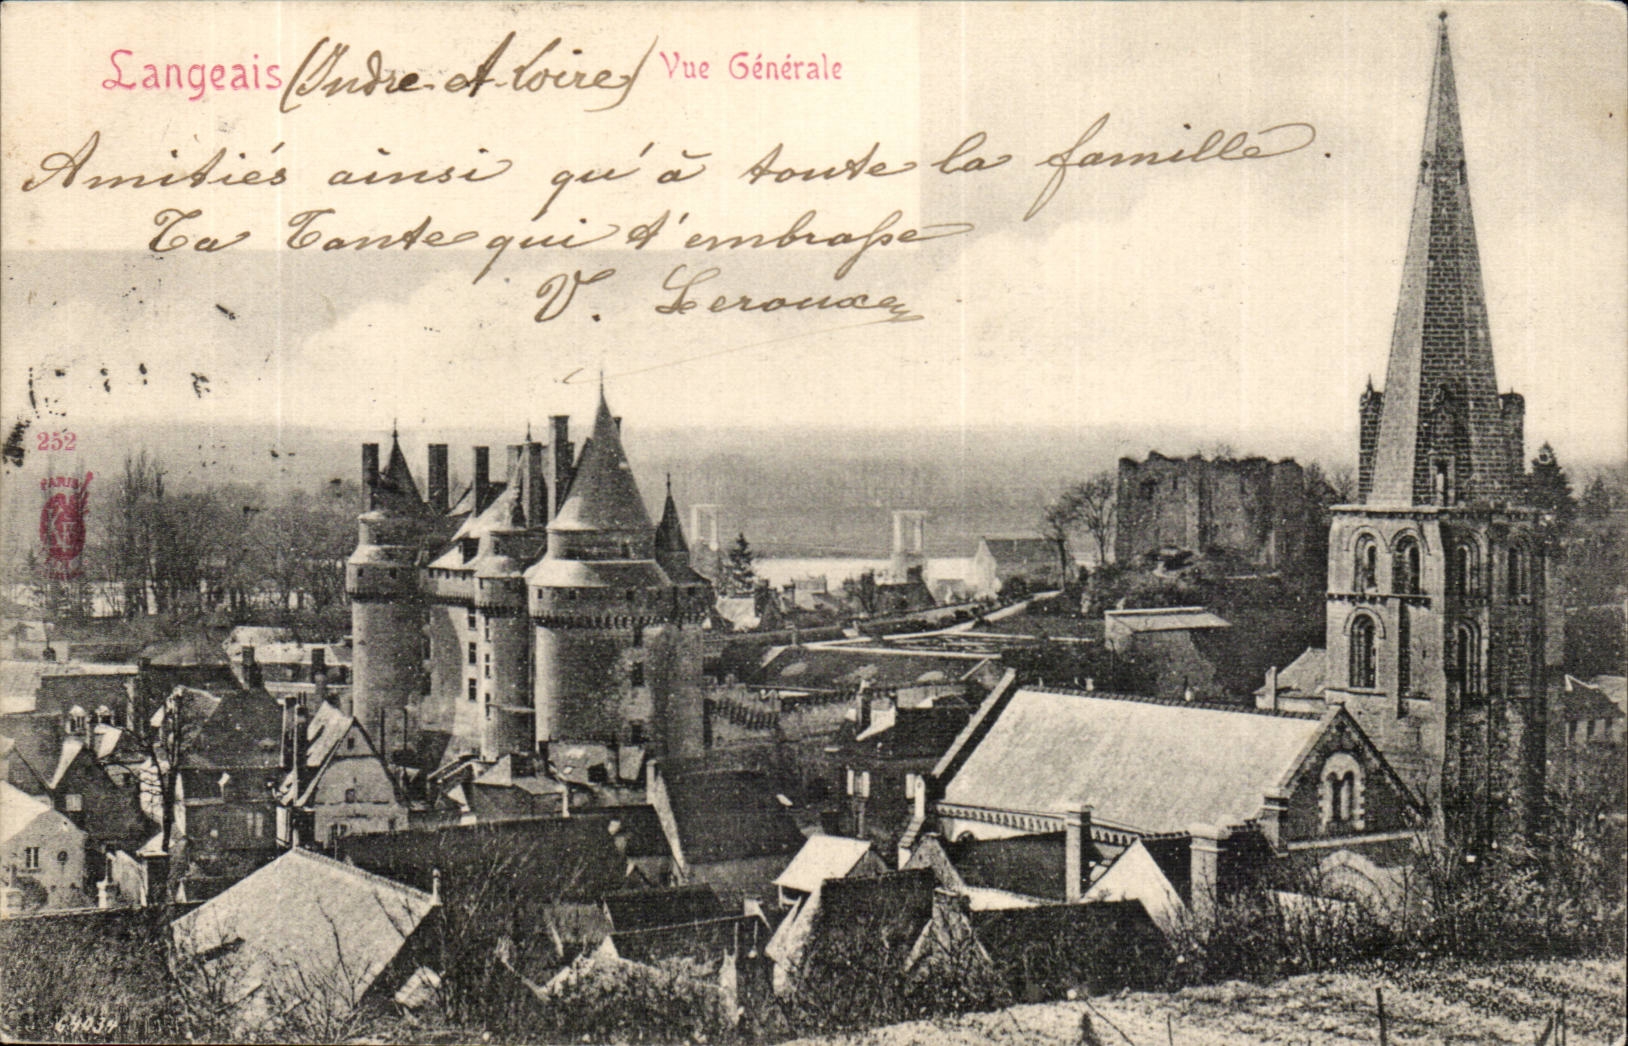 Langeais (Indre-et-Loire) Vue Générale
Amitiés ainsi qu'à toute la famille.
Ta Tante qui t'embrasse
V. Leroux
252
PARIS
64034